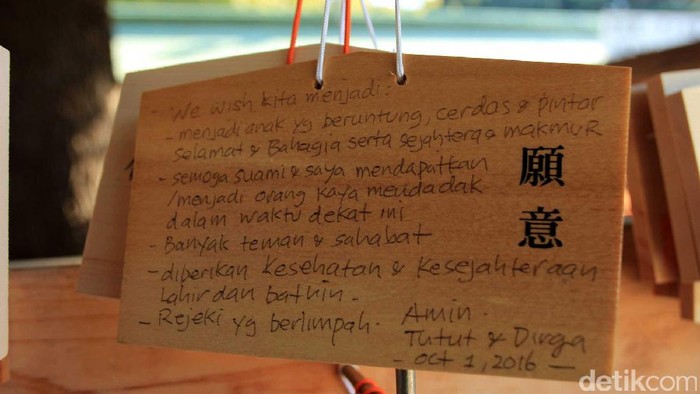 - We wish kita menjadi:
- menjadi anak yg beruntung, cerdas & pintar
selamat & Bahagia serta sejahtera & makmuR
- semoga suami & saya mendapatkan
/menjadi orang kaya mendadak
dalam waktu dekat ini
- Banyak teman & sahabat
- diberikan kesehatan & kesejahteraan
Lahir dan bathin -
- Rejeki yg berlimpah.
Amin.
Tutut & Dirga
- Oct 1, 2016 -
願意
detikcom